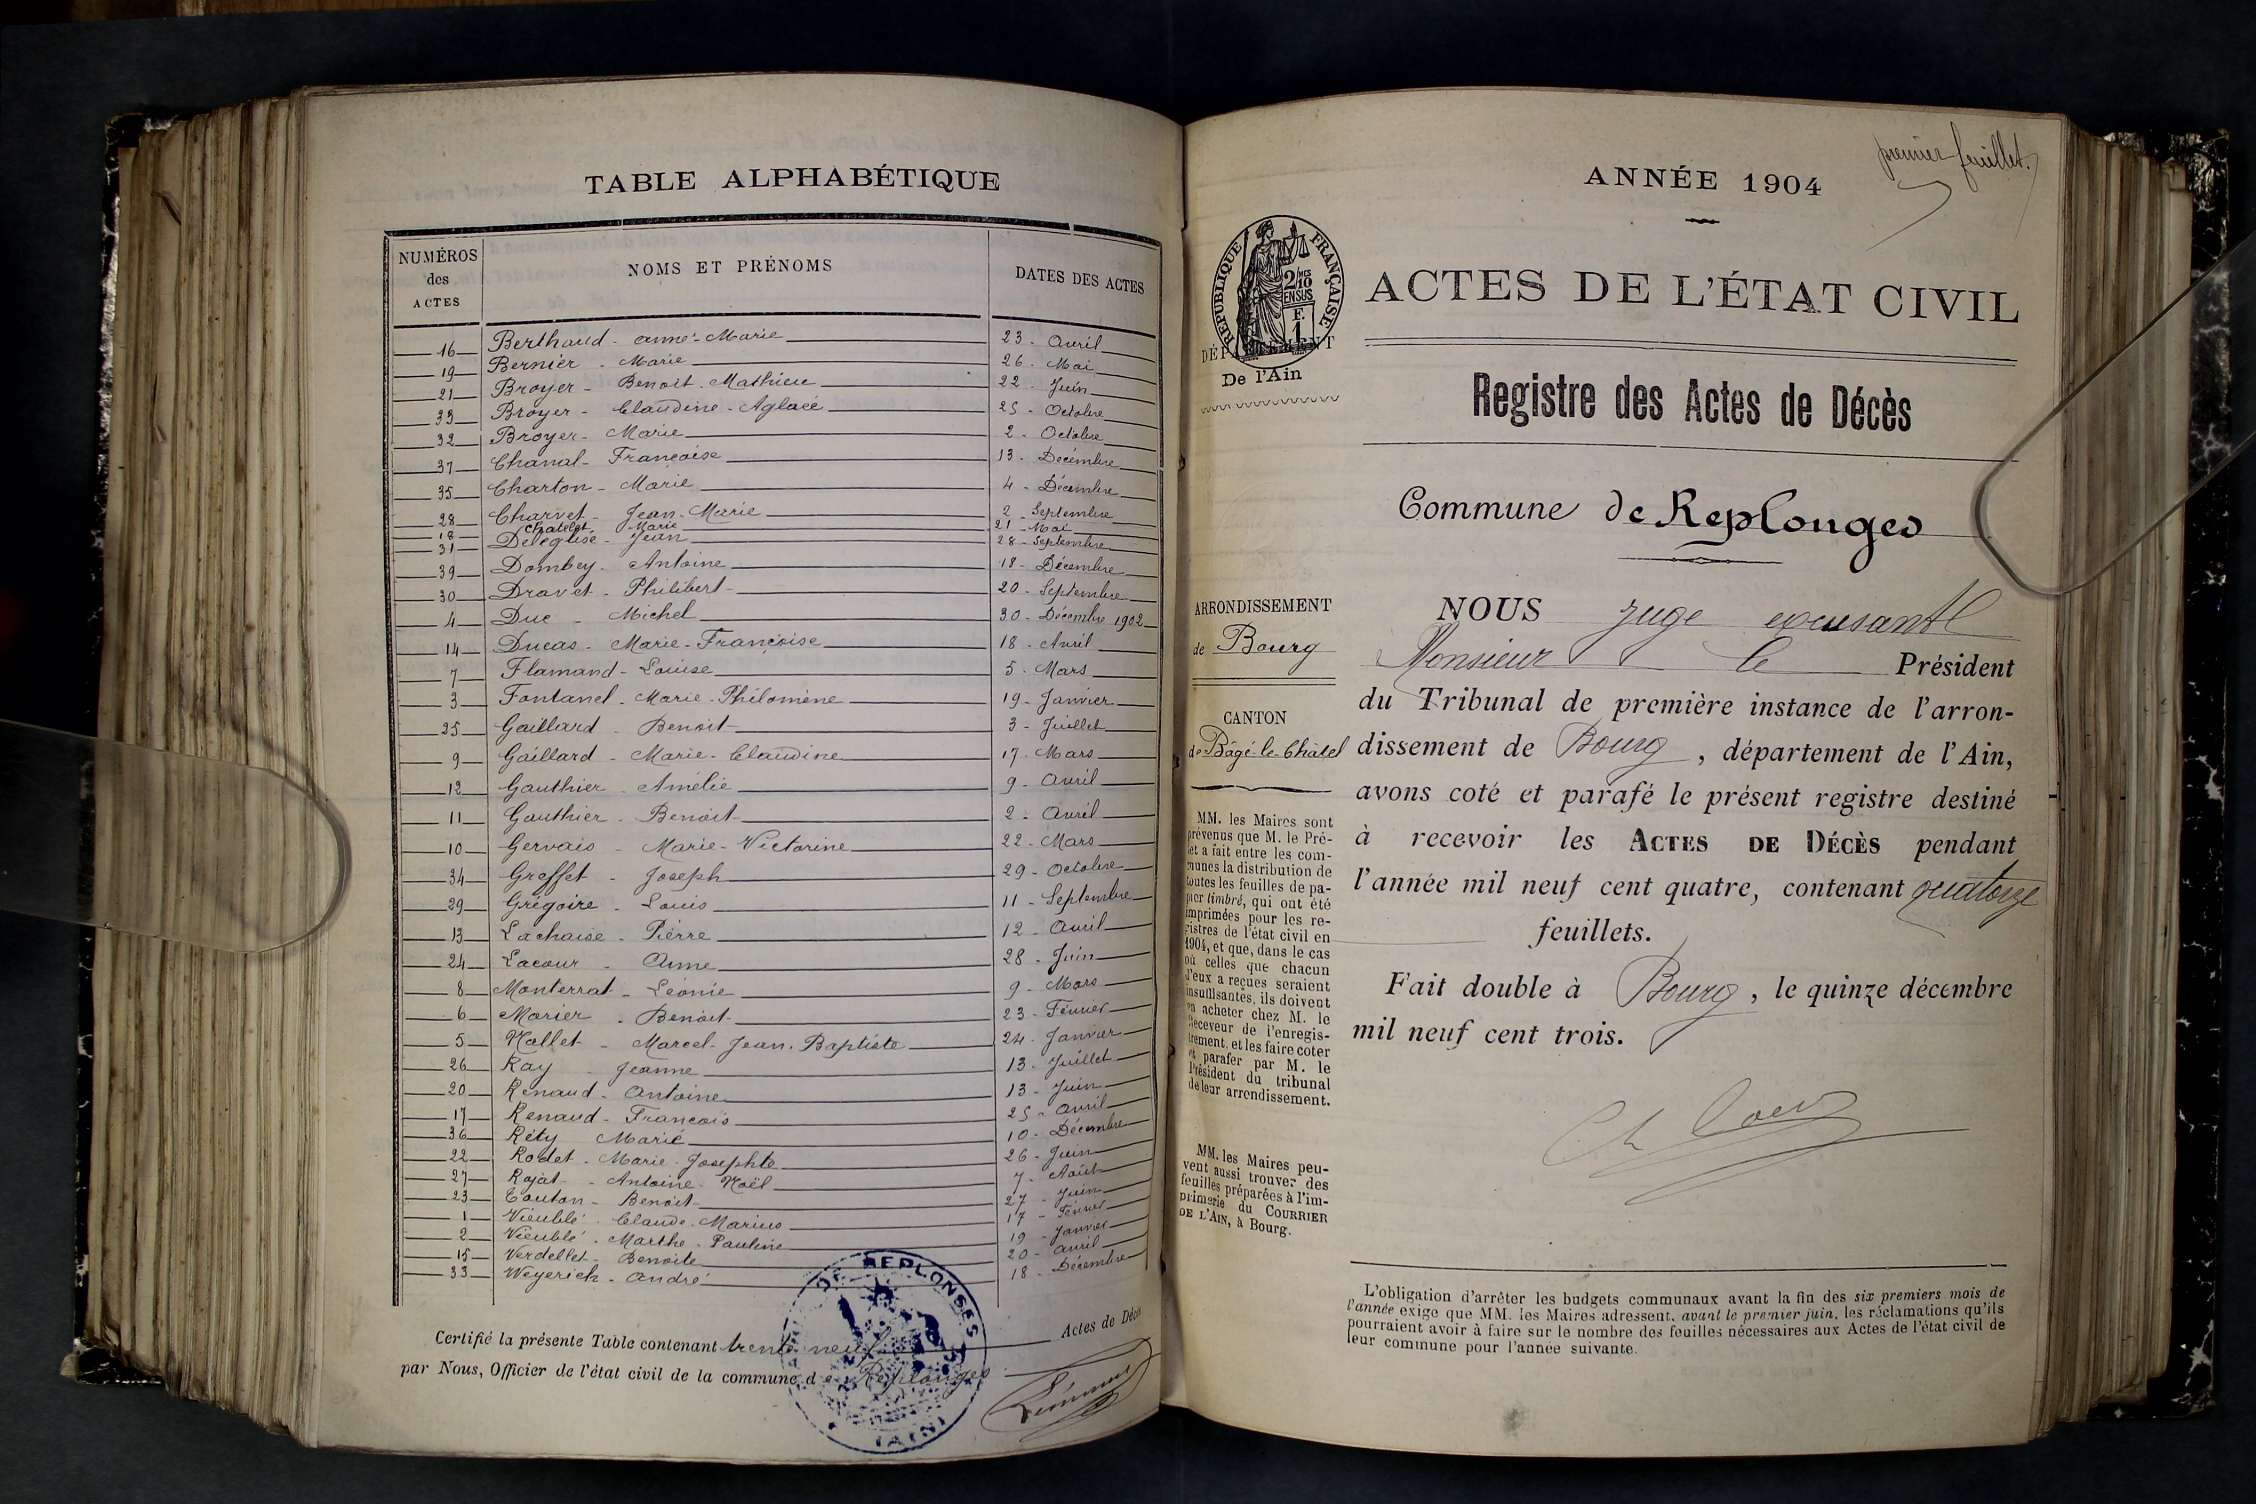 TABLE ALPHABÉTIQUE
NUMÉROS des ACTES NOMS ET PRÉNOMS DATES DES ACTES
16 Berthaud - Anne-Marie 23 - Avril
19 Bernier - Marie 26 - Mai
21 Broyer - Benoit - Mathieu 22 - Juin
33 Broyer - Claudine - Aglaée 25 - Octobre
32 Broyer - Marie 2 - Octobre
37 Chanal - Françoise 13 - Décembre
35 Charton - Marie 4 - Décembre
28 Charvet - Jean - Marie 2 - Septembre
18 Chatelet - Marie 21 - Mai
31 Deléglise - Jean 28 - Septembre
39 Dombey - Antoine 18 - Décembre
30 Dravet - Philibert 20 - Septembre
4 Duc - Michel 30 - Décembre 1902
14 Ducas - Marie - Françoise 18 - Avril
7 Flamand - Louise 5 - Mars
3 Fontanel - Marie - Philomène 19 - Janvier
25 Gaillard - Benoit 3 - Juillet
9 Gaillard - Marie - Claudine 17 - Mars
12 Gauthier - Amélie 9 - Avril
11 Gauthier - Benoit 2 - Avril
10 Gervais - Marie - Victorine 22 - Mars
34 Greffet - Joseph 29 - Octobre
29 Grégoire - Louis 11 - Septembre
13 Lachaise - Pierre 12 - Avril
24 Lacour - Anne 28 - Juin
8 Monterrat - Léonie 9 - Mars
6 Morier - Benoit 23 - Février
5 Nallet - Marcel - Jean - Baptiste 24 - Janvier
26 Ray - Jeanne 13 - Juillet
20 Renaud - Antoine 13 - Juin
17 Renaud - François 25 - Avril
36 Réty Marie 10 - Décembre
22 Rodet - Marie - Josephte 26 - Juin
27 Rojat - Antoine - Noël 7 - Août
23 Touton - Benoit 27 - Juin
1 Vieublé - Claude - Marius 17 - Février
2 Vieublé - Marthe - Pauline 19 - Janvier
15 Verdellet - Benoite 20 - Avril
33 Weyerich - André 18 - Décembre
Certifié la présente Table contenant trente neuf Actes de Décès
par Nous, Officier de l'état civil de la commune de Replonges
DE REPLONGES
(AIN)
premier feuillet.
ANNÉE 1904
RÉPUBLIQUE FRANÇAISE
2/10 EN SUS
F. 1
DÉPARTEMENT
De l'Ain
ACTES DE L'ÉTAT CIVIL
Registre des Actes de Décès
Commune de Replonges
ARRONDISSEMENT
de Bourg
CANTON
de Bâgé-le-Châtel
MM. les Maires sont
prévenus que M. le Pré-
fet a fait entre les com-
munes la distribution de
toutes les feuilles de pa-
pier timbré, qui ont été
imprimées pour les re-
gistres de l'état civil en
1904, et que, dans le cas
où celles que chacun
d'eux a reçues seraient
insuffisantes, ils doivent
en acheter chez M. le
Receveur de l'enregis-
trement, et les faire coter
et parafer par M. le
Président du tribunal
de leur arrondissement.
MM. les Maires peu-
vent aussi trouver des
feuilles préparées à l'im-
primerie du COURRIER
DE L'AIN, à Bourg.
NOUS Juge excusant
Monsieur le Président
du Tribunal de première instance de l'arron-
dissement de Bourg, département de l'Ain,
avons coté et parafé le présent registre destiné
à recevoir les ACTES DE DÉCÈS pendant
l'année mil neuf cent quatre, contenant quatorze
feuillets.
Fait double à Bourg, le quinze décembre
mil neuf cent trois.
L'obligation d'arrêter les budgets communaux avant la fin des six premiers mois de
l'année exige que MM. les Maires adressent, avant le premier juin, les réclamations qu'ils
pourraient avoir à faire sur le nombre des feuilles nécessaires aux Actes de l'état civil de
leur commune pour l'année suivante.